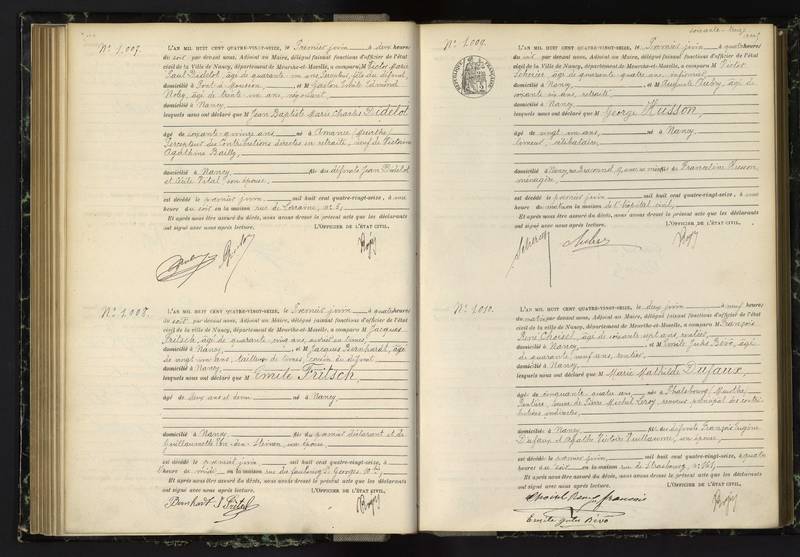 N° 1.007.
L'AN MIL HUIT CENT QUATRE-VINGT-SEIZE, le Premier juin à deux heures
du soir par devant nous, Adjoint au Maire, délégué faisant fonctions d'officier de l'état
civil de la Ville de Nancy, département de Meurthe-et-Moselle, a comparu M Victor Marie
Paul Didelot, âgé de quarante un ans, fils du défunt,
domicilié à Pont à Mousson, et M Gaston Emile Edmond
âgé de trente un ans, négociant,
domicilié à Nancy
lesquels nous ont déclaré que M Jean Baptiste Marie Charles Didelot
âgé de soixante quinze ans né à Amance (Meurthe)
Percepteur des Contributions directes en retraite, veuf de Victoire
Agathine Bailly,
domicilié à Nancy fils des défunts Jean Didelot
et Vital son épouse,
est décédé le premier juin mil huit cent quatre-vingt-seize, à une
heure du soir en la maison rue de Lorraine, n° 5,
Et après nous être assuré du décès, nous avons dressé le présent acte que les déclarants
ont signé avec nous après lecture. L'OFFICIER DE L'ÉTAT CIVIL,
N° 1.008.
L'AN MIL HUIT CENT QUATRE-VINGT-SEIZE, le Premier juin à quatre heures
du soir par devant nous, Adjoint au Maire, délégué faisant fonctions d'officier de l'état
civil de la ville de Nancy, département de Meurthe-et-Moselle, a comparu M Jacques
Fritsch, âgé de quarante cinq ans, ouvrier en limes,
domicilié à Nancy, et M Jacques Bernhardt, âgé
de vingt un ans, tailleur de limes, cousin du défunt
domicilié à Nancy,
lesquels nous ont déclaré que M Emile Fritsch,
âgé de deux ans et demi né à Nancy,
domicilié à Nancy fils du premier déclarant et de
son épouse,
est décédé le premier juin mil huit cent quatre-vingt-seize, à
heure de midi en la maison rue du faubourg St Georges,
Et après nous être assuré du décès, nous avons dressé le présent acte que les déclarants
ont signé avec nous après lecture. L'OFFICIER DE L'ÉTAT CIVIL,
Bernhart J Fritsch
N° 1.009.
L'AN MIL HUIT CENT QUATRE-VINGT-SEIZE, le Premier juin à quatre heures
du soir par devant nous, Adjoint au Maire, délégué faisant fonctions d'officier de l'état
civil de la Ville de Nancy, département de Meurthe-et-Moselle, a comparu M Victor
Scherrer, âgé de quarante quatre ans, infirmier
domicilié à Nancy et M Auguste Aubry, âgé de
soixante six ans, retraité
domicilié à Nancy
lesquels nous ont déclaré que M George Husson,
âgé de vingt un ans, né à Nancy
célibataire,
domicilié à Nancy, fils de Francoise Husson
ménagère,
est décédé le premier juin mil huit cent quatre-vingt-seize, à
heure du matin en la maison de l'hôpital civil,
Et après nous être assuré du décès, nous avons dressé le présent acte que les déclarants
ont signé avec nous après lecture. L'OFFICIER DE L'ÉTAT CIVIL,
N° 1.010.
L'AN MIL HUIT CENT QUATRE-VINGT-SEIZE, le deux juin à neuf heures
du matin par devant nous, Adjoint au Maire, délégué faisant fonctions d'officier de l'état
civil de la ville de Nancy, département de Meurthe-et-Moselle, a comparu M François
René Choisel, âgé de soixante sept ans, rentier
domicilié à Nancy, et M Emile Jules Bévò, âgé
de quarante neuf ans, rentier,
domicilié à Nancy,
lesquels nous ont déclaré que M Marie Mathilde Dufaux,
âgé de cinquante quatre ans, née à Phalsbourg (Meurthe)
Rentière, veuve de Pierre Michel Leroy, receveur principal des contri-
butions indirectes
domicilié à Nancy fille des défunts François Eugène
Dufaux et Agathe Victoire Vuillaume, son épouse,
est décédé le premier juin mil huit cent quatre-vingt-seize, à quatre
heures du soir en la maison rue de Strasbourg, n° 161,
Et après nous être assuré du décès, nous avons dressé le présent acte que les déclarants
ont signé avec nous après lecture. L'OFFICIER DE L'ÉTAT CIVIL,
Choisel René francois
Emile Jules Bévò